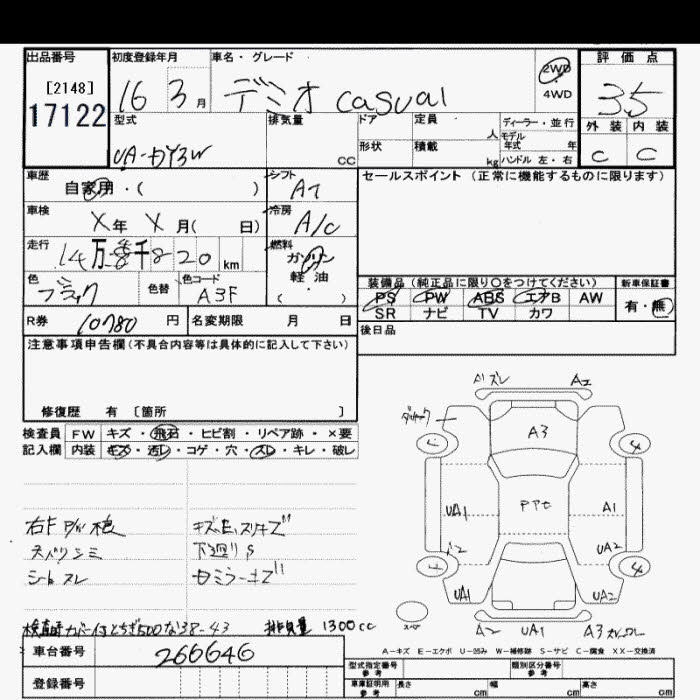 出品番号 初度登録年月 車名・グレード 評価点
[2148]
17122
16 3月 デミオ casual
2WD
4WD
3.5
型式 排気量 ドア 定員 人 ディーラー・並行
モデル年式 年
外装 内装
UA-DY3W cc 形状 積載 kg ハンドル 左・右 C C
車歴 シフト セールスポイント (正常に機能するものに限ります)
自家用・( ) AT
車検 冷房
X年 X月( 日) A/C
走行 燃料
14万 千820 km ガソリン
軽油
( )
色 色替 色コード
ブラック A3F
装備品 (純正品に限り○をつけてください) 新車保証書
PS PW ABS エアB AW 有・無
SR ナビ TV カワ
R券 10780 円 名変期限 月 日 後日品
注意事項申告欄(不具合内容等は具体的に記入して下さい)
修復歴 有 〔箇所 〕
検査員 FW キズ・飛石・ヒビ割・リペア跡・×要
記入欄 内装 キズ・汚レ・コゲ・穴・スレ・キレ・破レ
A1 ズレ A2
A3
UA1 PPt A1
A2 UA2
UA1 UA2
右F P/W
シミ 下廻りS
シートスレ ミラーキズ
スペア
A2 UA1 A3
38-43 排気量 1300cc
A-キズ E-エクボ U-凹み W-補修跡 S-サビ C-腐食 XX-交換済
車台番号 266646
登録番号
型式指定番号 参考 類別区分番号 参考
車庫証明用 参考 長さ cm 幅 cm 高さ cm